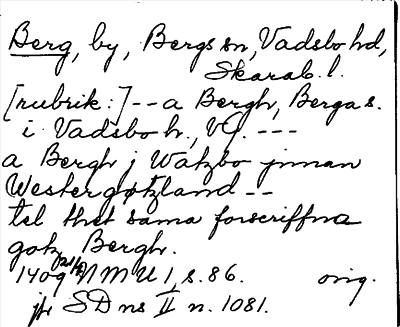 Berg, by, Bergs sn, Vadsbo hd,
Skarab. l.
[rubrik:] -- a Bergh, Berga s.
i Vadsbo h., VG. ---
a Bergh j Watzbo jnnan
Westergøtzland --
tel thet sama forscriffna
gotz Bergh.
1409 21/2 NMU 1, s. 86. orig.
jfr SD ns II n. 1081.